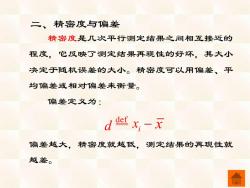 二、精密度与偏差
精密度是几次平行测定结果之间相互接近的
程度，它反映了测定结果再现性的好坏，其大小
决定于随机误差的大小。精密度可以用偏差、平
均偏差或相对偏差来衡量。
偏差定义为：
d \overset{def}{=} x_i − x̄
偏差越大，精密度就越低，测定结果的再现性就
越差。